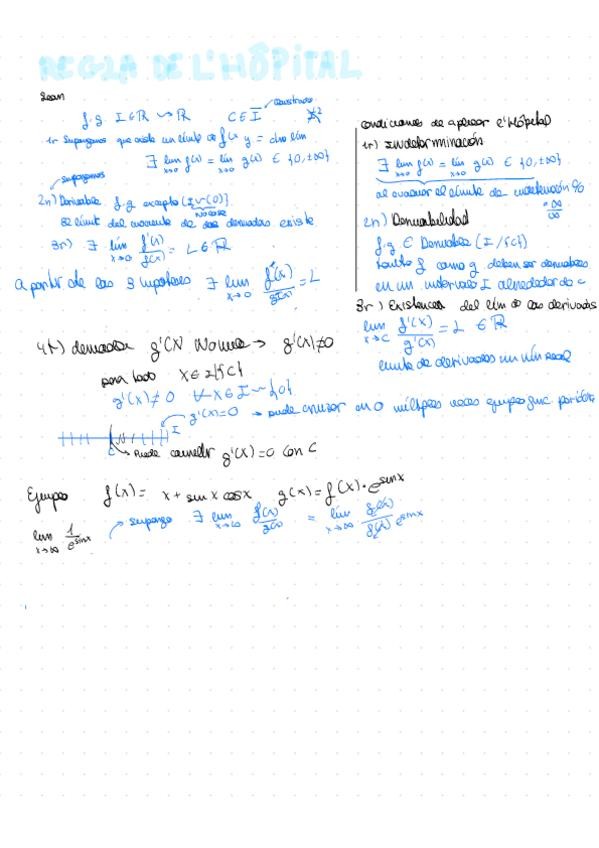 REGLA DE L'HÔPITAL
Sean
f.g I∈ℝ ↝ ℝ C∈I
1r Supongamos que existe un límite de f(x) y = dho lím
∃ lim x→0 f(x) = lím x→0 g(x) ∈ {0,±∞}
supongamos
2n) Derivable f.g excepto (I∖{0})
El límit del cociente de des derivadas existe
3r) ∃ lím x→0 f'(x)/g'(x) = L∈ℝ
A partir de las 3 hipótesis ∃ lim x→0 f(x)/g(x) = L
Condiciones de aplicar l'Hôpital
1r) Indeterminación
∃ lim x→0 f(x) = lím x→0 g(x) ∈ {0,±∞}
al evaluar el límite de indeterminación %
∞/∞
2n) Derivabilidad
f.g ∈ Derivables (I/{c})
tanto f como g deben ser derivables
en un intervalo I alrededor de c
3r) Existencia del lím de las derivadas
lim x→c f'(x)/g'(x) = L ∈ℝ
límite de derivadas un nún real
4t) g'(x) → g'(x)≠0
para todo
g'(x)≠0 ∀x∈I∖{0}
g'(x)=0 → puede cruzar en 0 múltiples veces
I
C
→ Puede g'(x)=0 con C
Ejemplo f(x)= x+sin x cosx g(x)=f(x)·e^sinx
lim x→∞ 1/e^sinx supongo ∃ lim x→∞ f(x)/g(x) = lím x→∞ f(x)/f(x) e^sinx